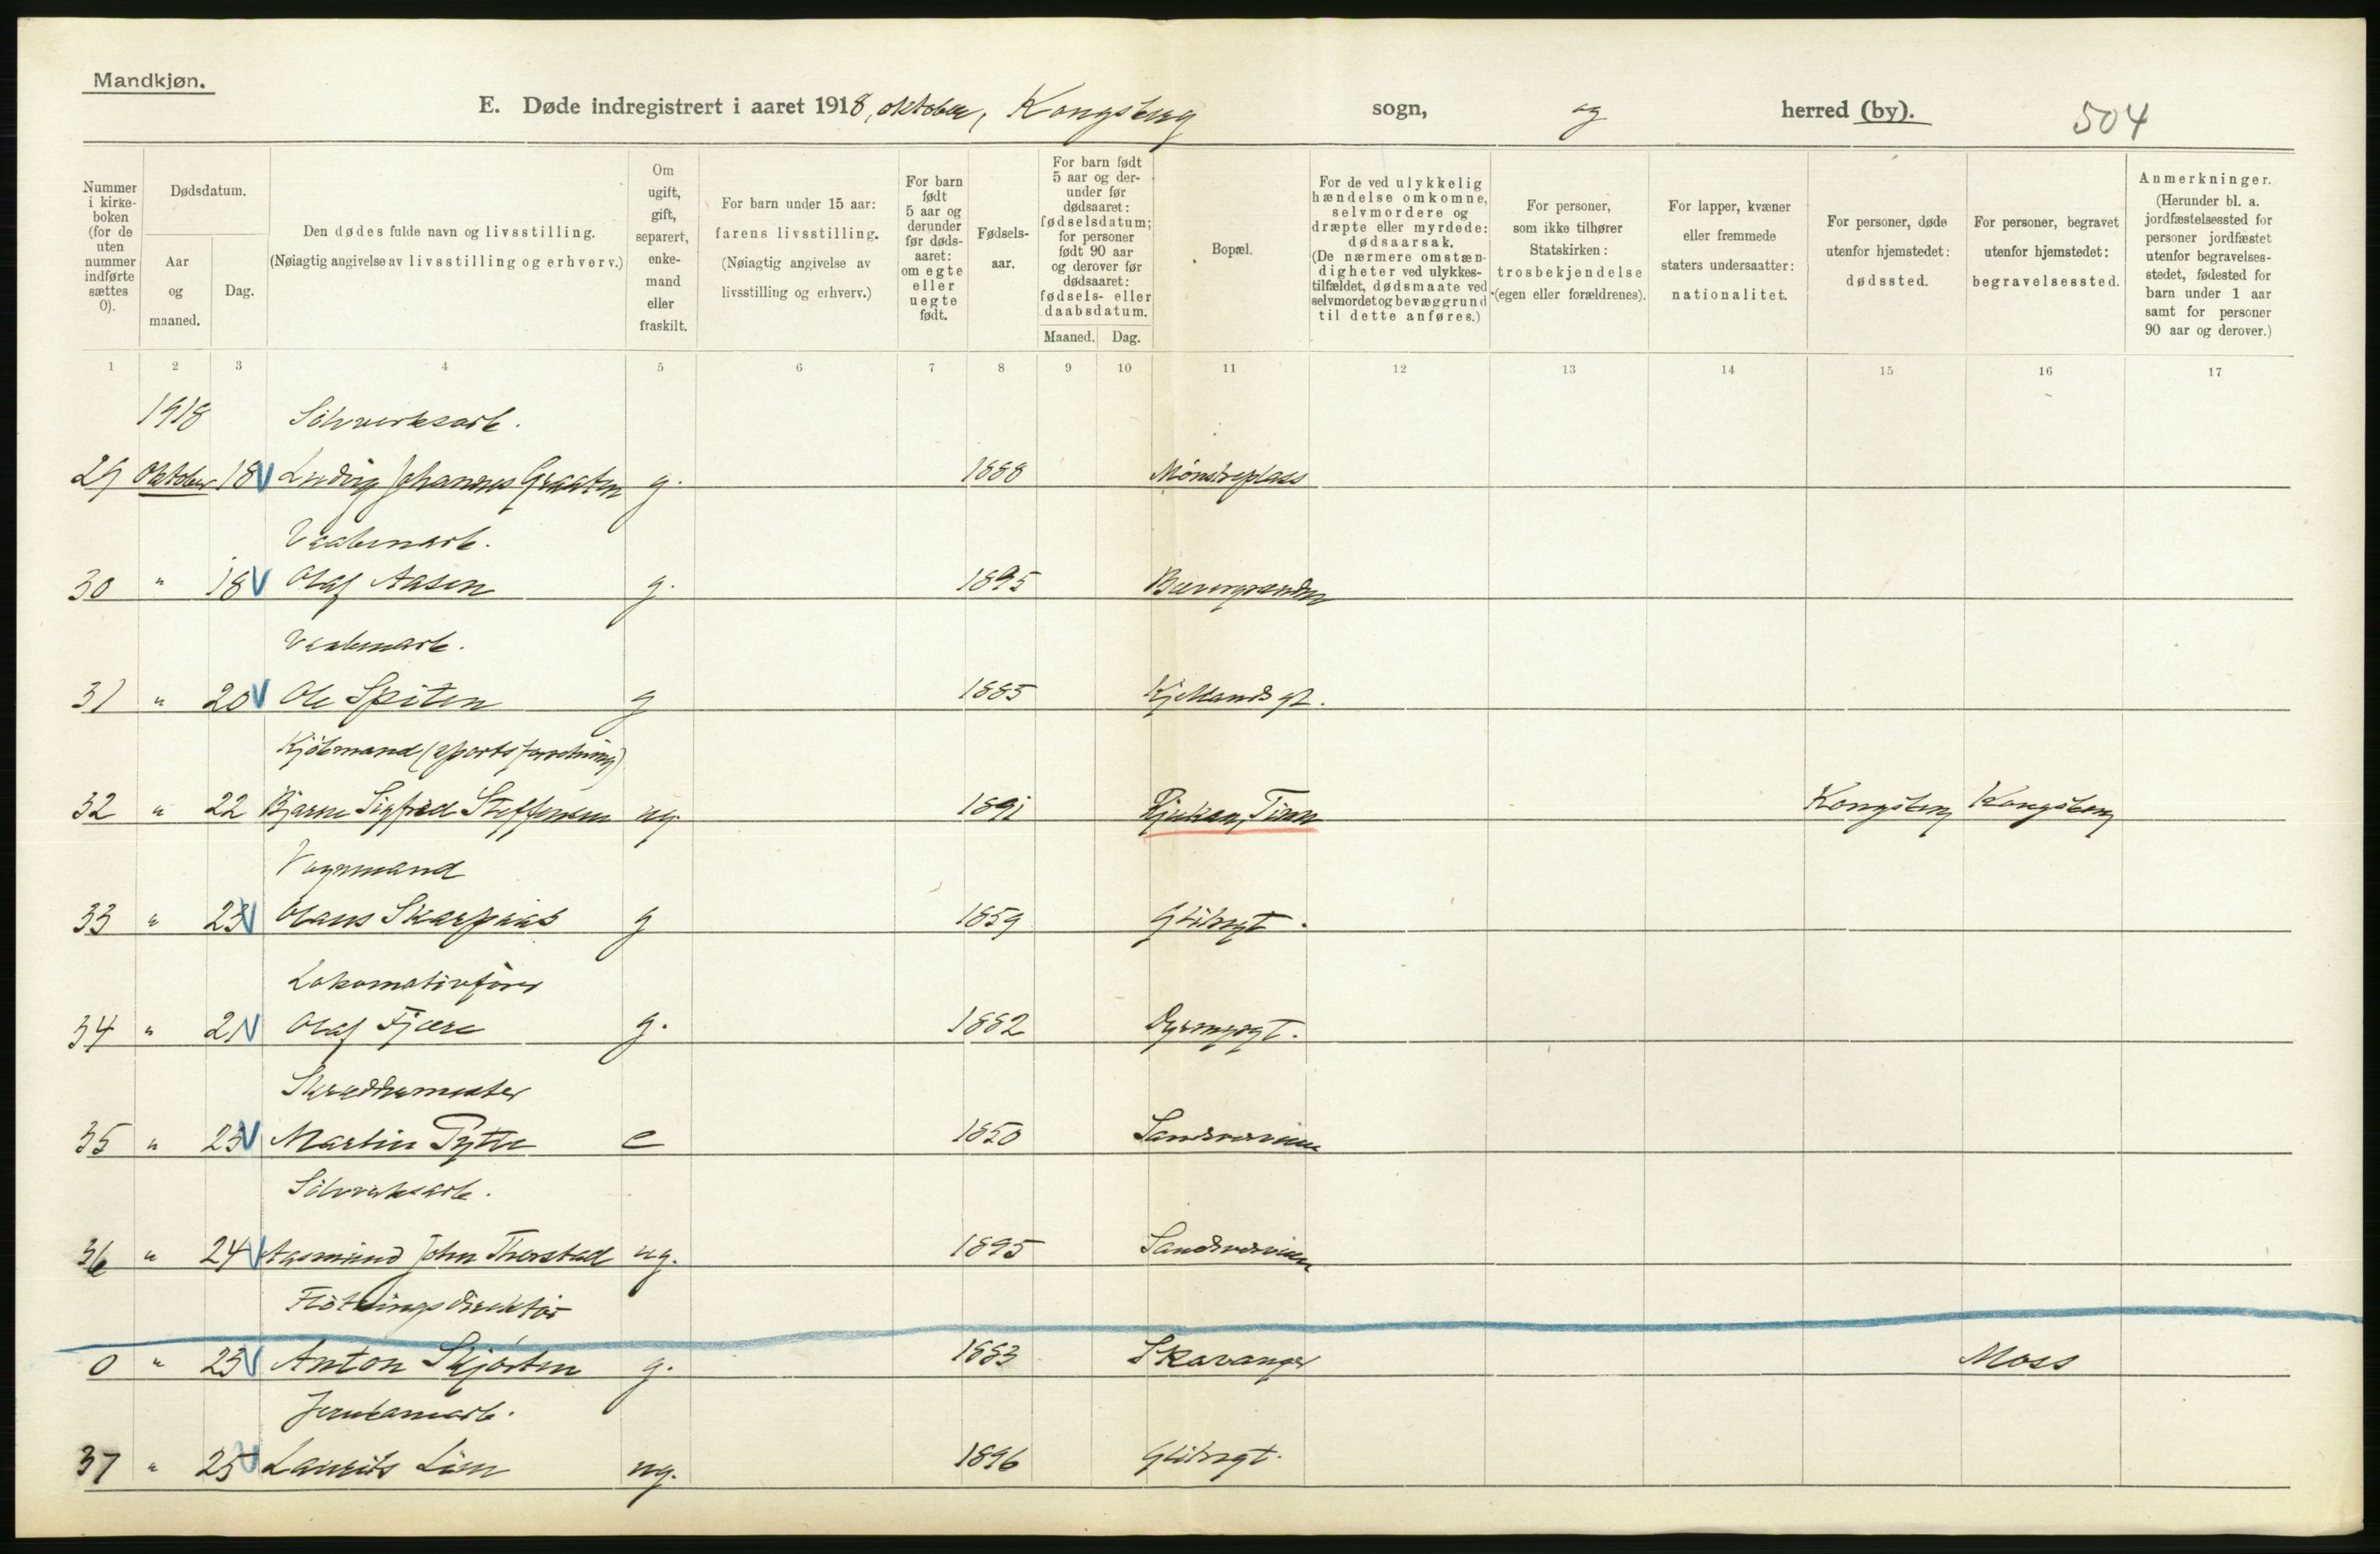 Mandkjøn.
E. Døde indregistrert i aaret 1918, oktober, Kongsberg sogn, og herred (by). 504
Nummer i kirkeboken (for de uten nummer indførte sættes 0).
Dødsdatum.
Aar og maaned.
Dag.
Den dødes fulde navn og livsstilling.
(Nøiagtig angivelse av livsstilling og erhverv.)
Om ugift, gift, separert, enkemand eller fraskilt.
For barn under 15 aar: farens livsstilling.
(Nøiagtig angivelse av livsstilling og erhverv.)
For barn født 5 aar og derunder før dødsaaret: om egte eller uegte født.
Fødselsaar.
For barn født 5 aar og derunder før dødsaaret: fødselsdatum; for personer født 90 aar og derover før dødsaaret: fødsels- eller daabsdatum.
Maaned. Dag.
Bopæl.
For de ved ulykkelig hændelse omkomne, selvmordere og dræpte eller myrdede: dødsaarsak.
(De nærmere omstændigheter ved ulykkestilfældet, dødsmaate ved selvmordet og bevæggrund til dette anføres.)
For personer, som ikke tilhører Statskirken: trosbekjendelse (egen eller forældrenes).
For lapper, kvæner eller fremmede staters undersaatter: nationalitet.
For personer, døde utenfor hjemstedet: dødssted.
For personer, begravet utenfor hjemstedet: begravelsessted.
Anmerkninger.
(Herunder bl. a. jordfæstelsessted for personer jordfæstet utenfor begravelsesstedet, fødested for barn under 1 aar samt for personer 90 aar og derover.)
1 2 3 4 5 6 7 8 9 10 11 12 13 14 15 16 17
1918 Sölvverksarb.
29 Oktober 18 V Ludvig Johannes Graaten g. 1888 Mønstreplass
Vaabenarb.
30 " 18 V Olaf Aasen g. 1895
Vaabenarb.
31 " 20 V Ole Spiten g 1885 Kjellands gt.
Kjöbmand (sportsforretning)
32 " 22 Bjarne Sigfred Steffensen ug. 1891 Rjukan, Tinn Kongsberg Kongsberg
Vognmand
33 " 23 V Olaus Skarpnæs g 1859 Glitregt.
Lokomotivfører
34 " 21 V Olaf Fjære g. 1882 Dyrmyrgt.
Skræddermester
35 " 23 V Martin Pytte e 1850 Sandsværveien
Sölvverksarb.
36 " 24 V Aasmund John Thorstad ug. 1895 Sandsværveien
Flötningsdirektör
0 " 23 V Anton Skjørten g. 1883 Skavanger Moss
Jernbanearb.
37 " 25 V Laurits Lien ug. 1896 Glitregt.